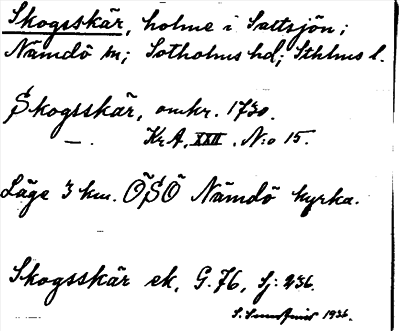 Skogsskär, holme i Sattsjön;
Nämdö sn; Sotholms hd; Sthlms l.
Skogsskär, omkr. 1730.
—. Kr A, XXII. N:o 15.
Läge 3 km. ÖSÖ Nämdö kyrka.
Skogsskär ek, G. 76, Sj: 236.
1936.